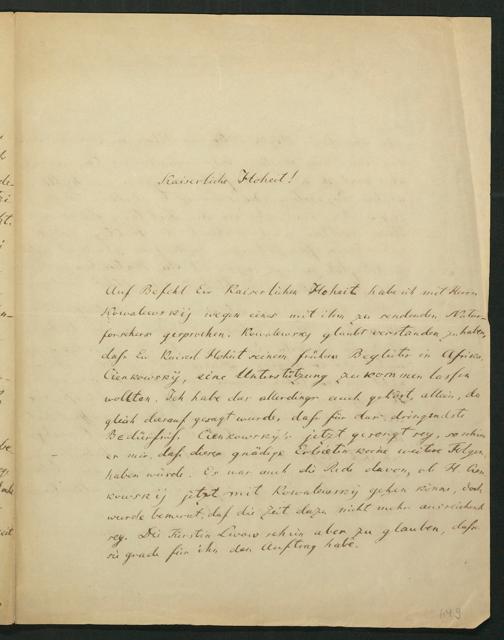 Kaiserliche Hoheit!
Auf Befehl Ew Kaiserlichen Hoheit habe ich mit Herrn
Kowalewskij wegen eines mit ihm zu sendenden Natur-
forschers gesprochen. Kowalewsky glaubt verstanden zu haben,
daß Ew Kaiserl Hoheit seinem frühern Begleiter in Afrika,
Cienkowskij, eine Unterstützung zukommen lassen
wollten. Ich habe das allerdings auch gehört, allein, da
gleich darauf gesagt wurde, daß für das dringendste
Bedürfniß Cienkowsky's jetzt gesorgt sey, so schien
es mir, daß dieses gnädige Erbieten keine weitere Folgen
haben würde. Es war auch die Rede davon, ob H Cien-
kowskij jetzt mit Kowalewskij gehen könne, doch
wurde bemerkt, daß die Zeit dazu nicht mehr ausreichend
sey. Die Fürstin Lwow schien aber zu glauben, daß
sie grade für ihn den Auftrag habe.
149